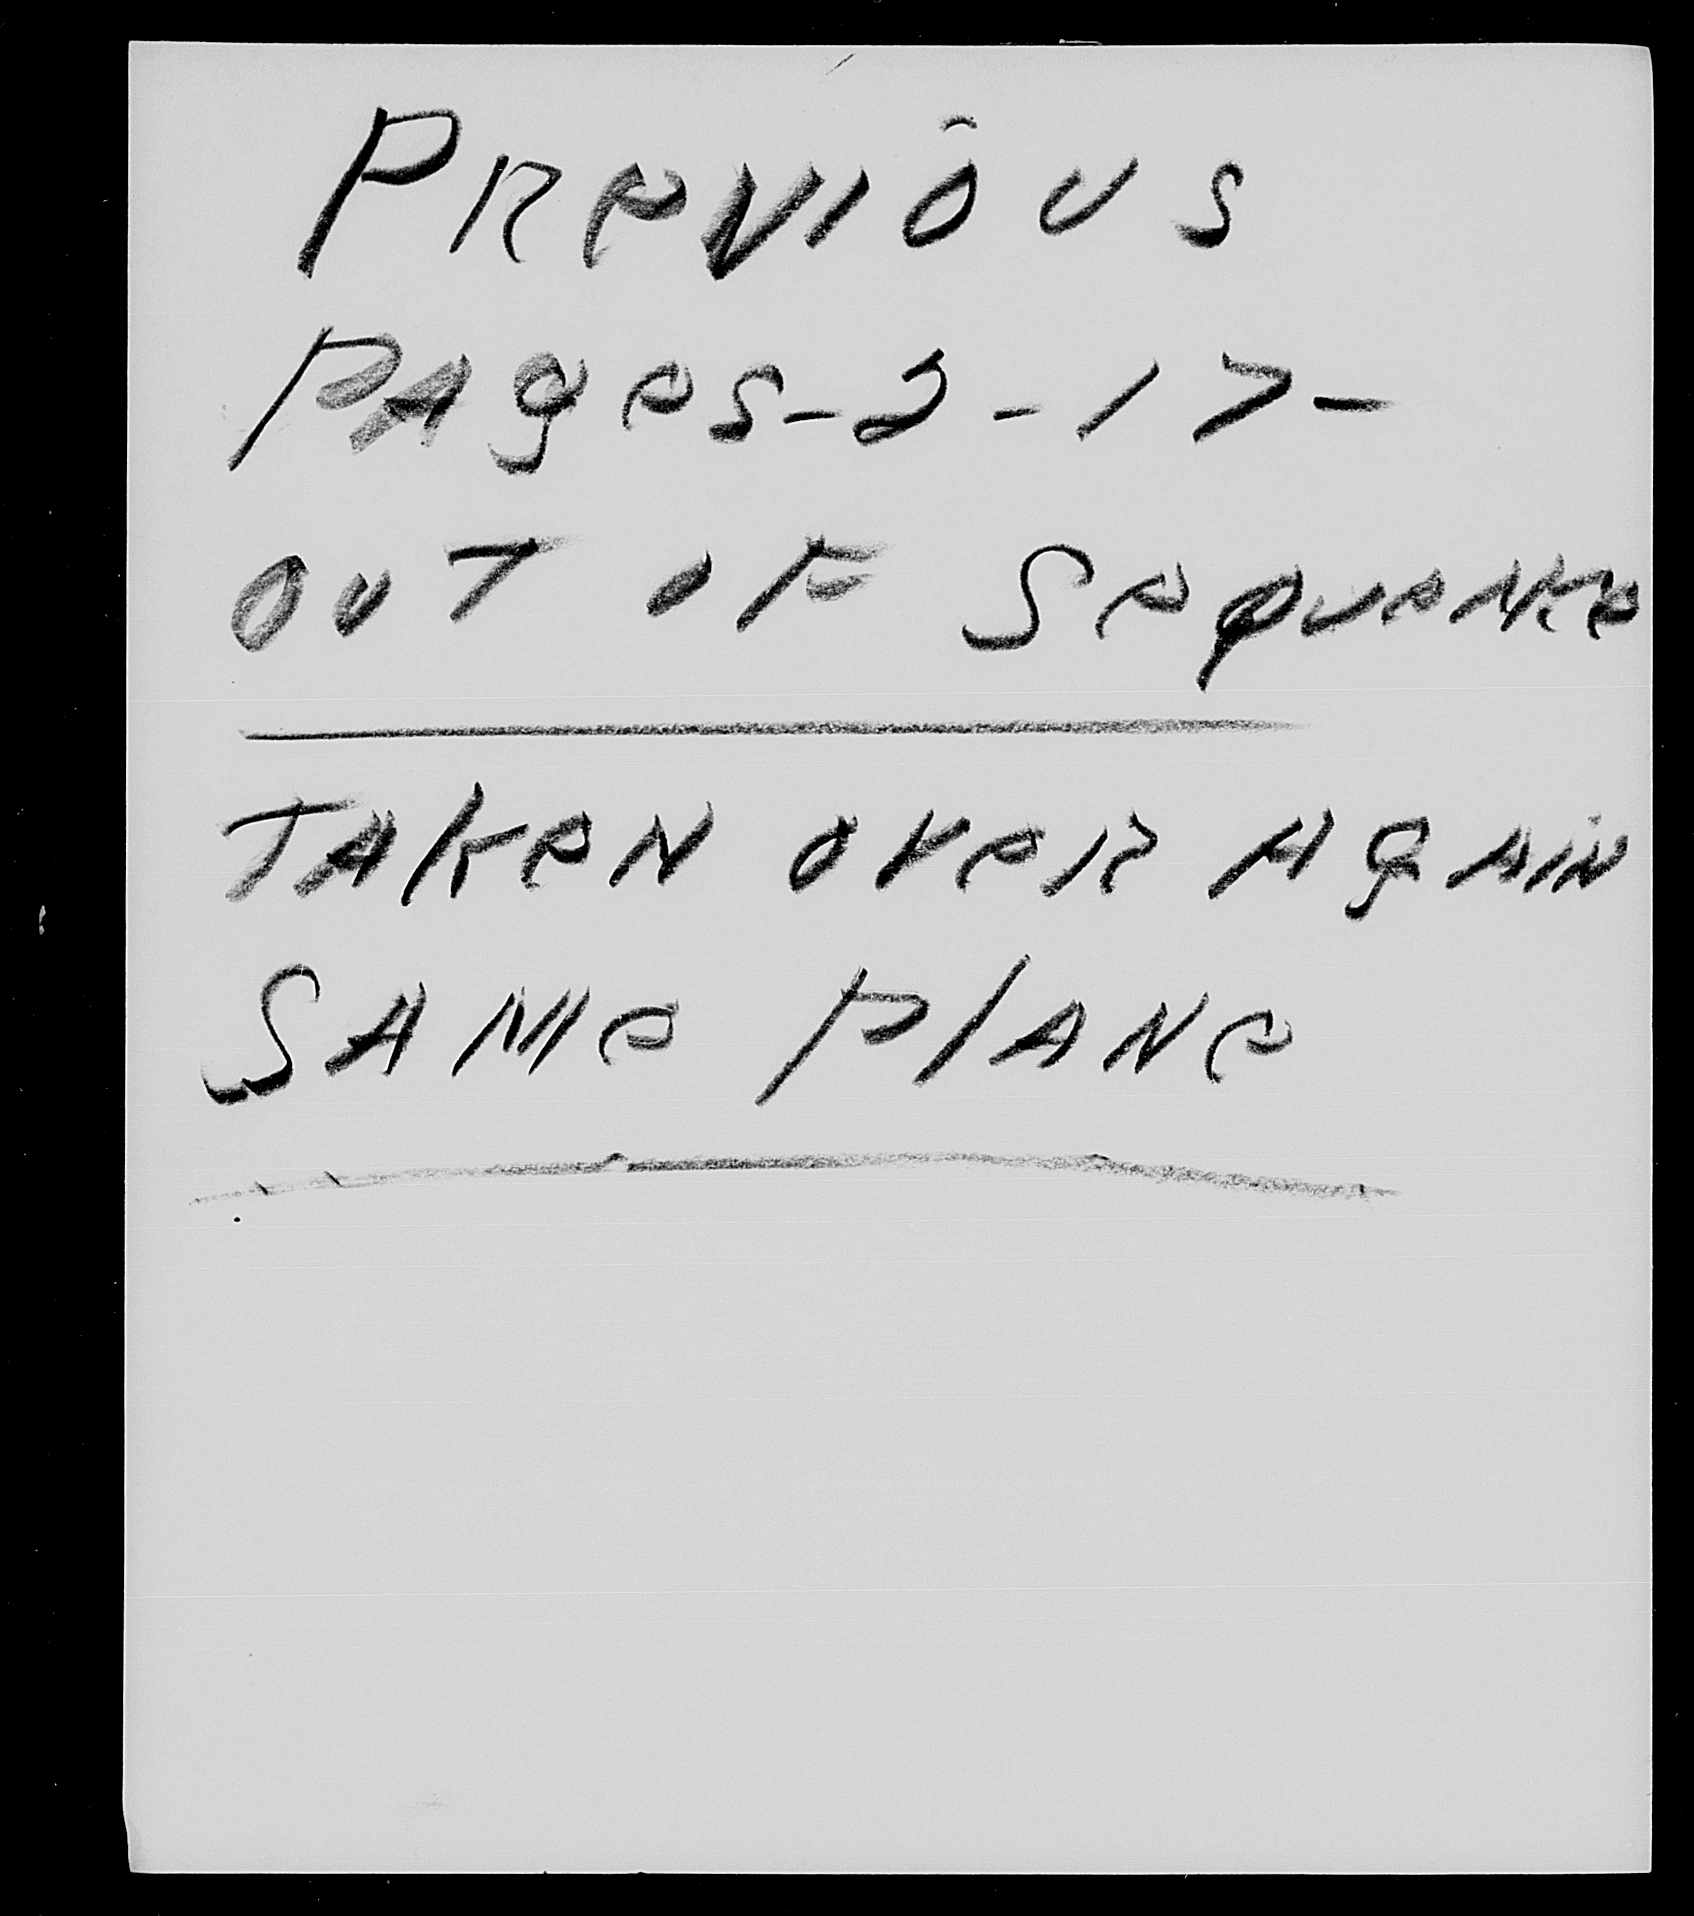 PReVIOUS
PAgeS-2-17-
OUT OF SeQUeNCe
TAKeN OVeR AgAIN
SAMe PlANe